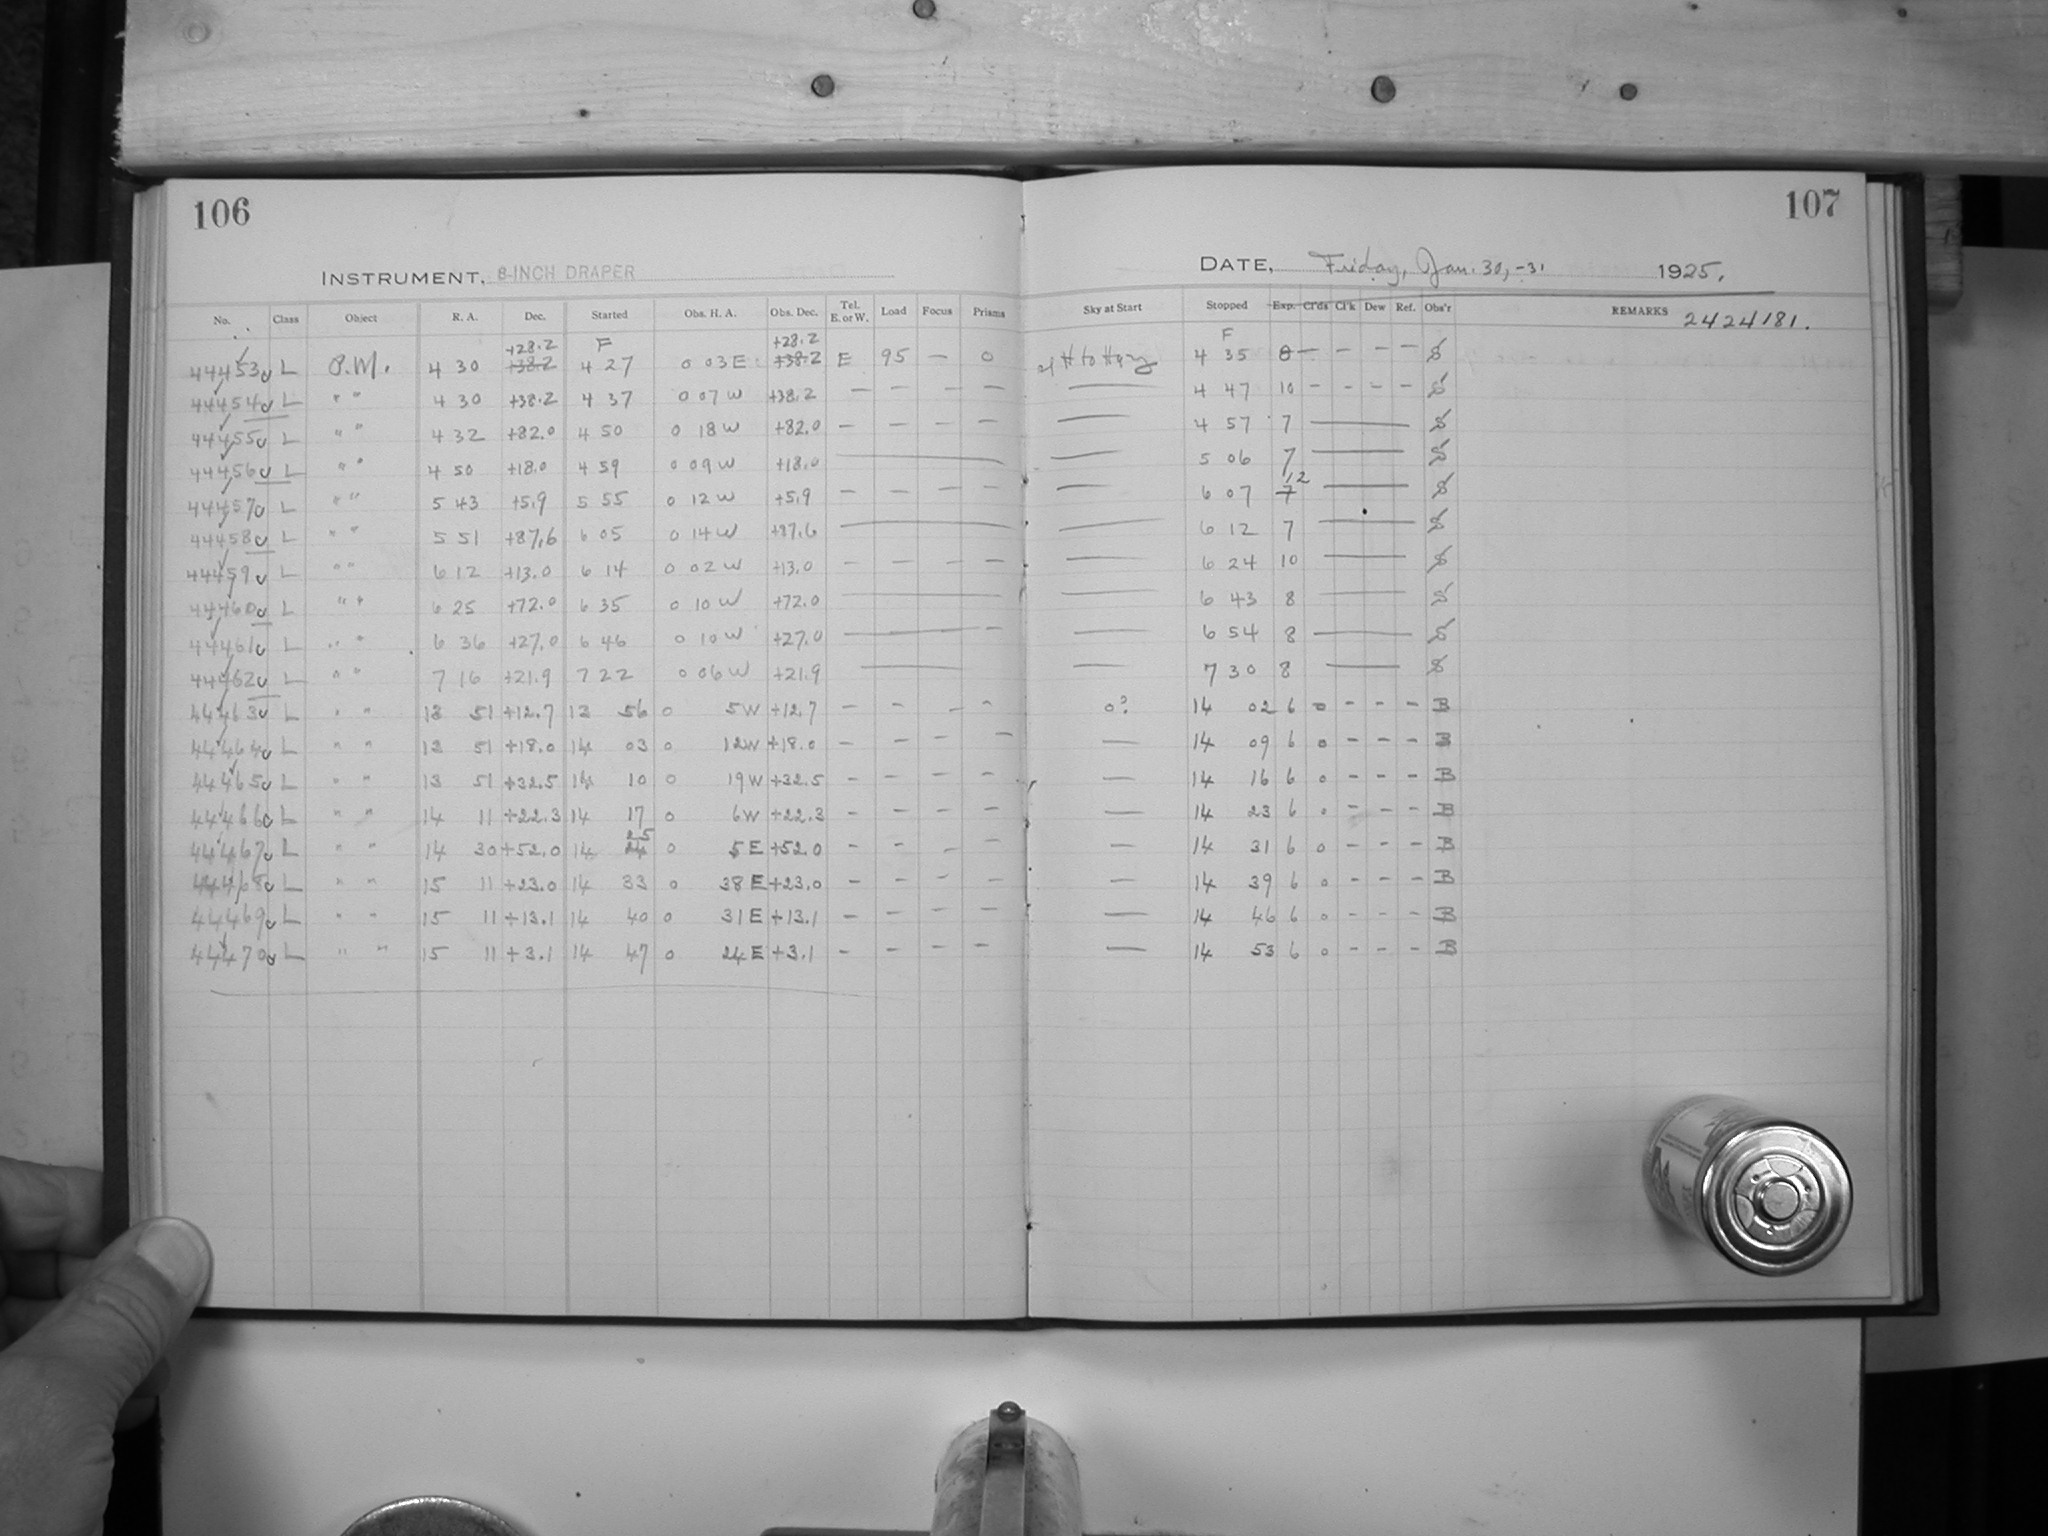 106
107
INSTRUMENT, 8-INCH DRAPER
DATE, Friday, Jan. 30,-31 1925.
No. Class Object R. A. Dec. Started Obs. H. A. Obs. Dec. Tel. E. or W. Load Focus Prisms Sky at Start Stopped Exp. Cl'ds Cl'k Dew Ref. Obs'r REMARKS 2424181.
+28.2 F +28.2 F
44453 L P.M. 4 30 +38.2 4 27 0 03 E +38.2 E 95 — 0 to Hazy 4 35 8 — — — — S
44454 L " " 4 30 +38.2 4 37 0 07 W +38.2 — — — — — 4 47 10 — — — — S
44455 L " " 4 32 +82.0 4 50 0 18 W +82.0 — — — — — 4 57 7 — S
44456 L " " 4 50 +18.0 4 59 0 09 W +18.0 — — 5 06 7 — S
44457 L " " 5 43 +5.9 5 55 0 12 W +5.9 — — — — — 6 07 7 12 — S
44458 L " " 5 51 +87.6 6 05 0 14 W +87.6 — — 6 12 7 — S
44459 L " " 6 12 +13.0 6 14 0 02 W +13.0 — — — — — 6 24 10 — S
44460 L " " 6 25 +72.0 6 35 0 10 W +72.0 — — 6 43 8 — S
44461 L " " 6 36 +27.0 6 46 0 10 W +27.0 — — — 6 54 8 — S
44462 L " " 7 16 +21.9 7 22 0 06 W +21.9 — — 7 30 8 — S
44463 L " " 13 51 +12.7 13 56 0 5 W +12.7 — — — — 0? 14 02 6 0 — — — B
44464 L " " 13 51 +18.0 14 03 0 12 W +18.0 — — — — — 14 09 6 0 — — — B
44465 L " " 13 51 +32.5 14 10 0 19 W +32.5 — — — — — 14 16 6 0 — — — B
44466 L " " 14 11 +22.3 14 17 0 6 W +22.3 — — — — — 14 23 6 0 — — — B
44467 L " " 14 30 +52.0 14 24 25 0 5 E +52.0 — — — — — 14 31 6 0 — — — B
44468 L " " 15 11 +23.0 14 33 0 38 E +23.0 — — — — — 14 39 6 0 — — — B
44469 L " " 15 11 +13.1 14 40 0 31 E +13.1 — — — — — 14 46 6 0 — — — B
44470 L " " 15 11 +3.1 14 47 0 24 E +3.1 — — — — — 14 53 6 0 — — — B